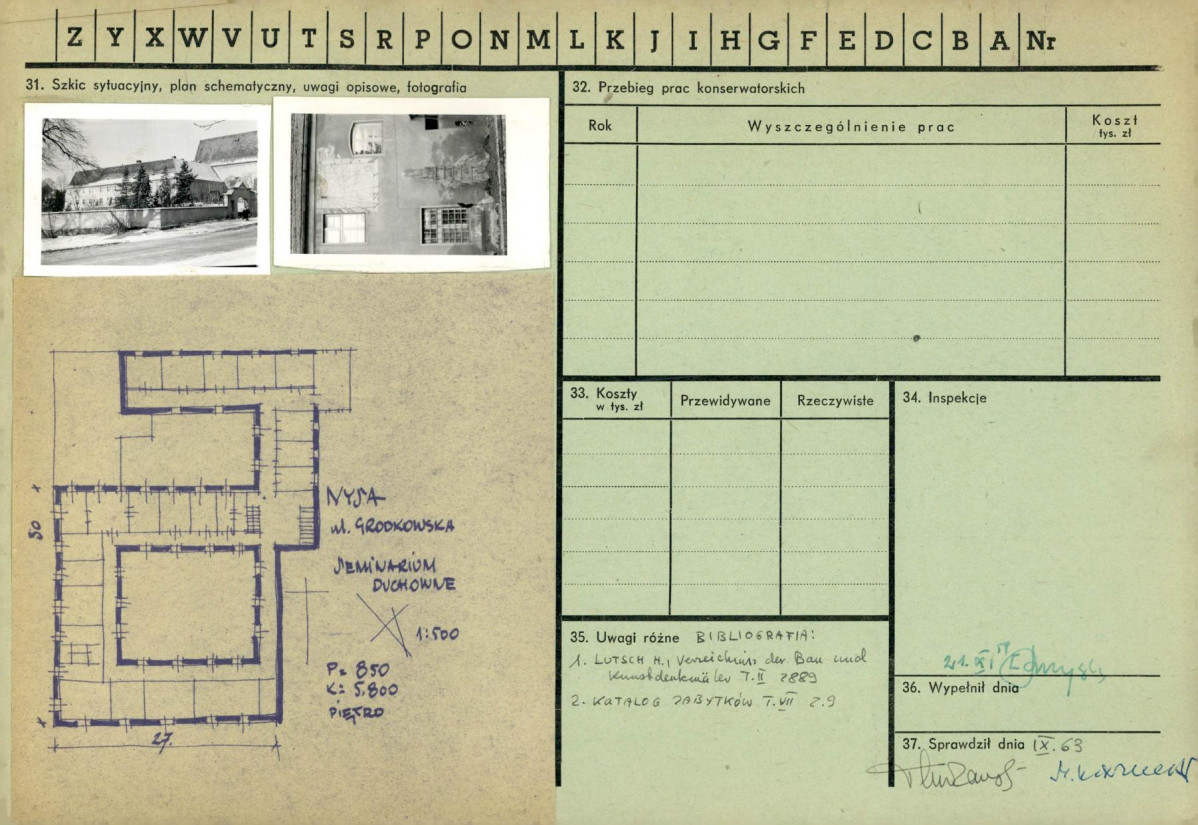 Z Y X W V U T S R P O N M L K J I H G F E D C B A Nr
31. Szkic sytuacyjny, plan schematyczny, uwagi opisowe, fotografia
NYSA
ul. GRODKOWSKA
SEMINARIUM
DUCHOWNE
1:500
P= 850
K= 5.800
PIĘTRO
30
27.
32. Przebieg prac konserwatorskich
Rok
Wyszczególnienie prac
Koszt
tys. zł
33. Koszty
w tys. zł
Przewidywane
Rzeczywiste
34. Inspekcje
35. Uwagi różne BIBLIOGRAFIA:
1. LUTSCH H., Verzeichnis der Bau und
Kunstdenkmäler T.II 1889
2. KATALOG ZABYTKÓW T.VII z.9
36. Wypełnił dnia
37. Sprawdził dnia IX.63